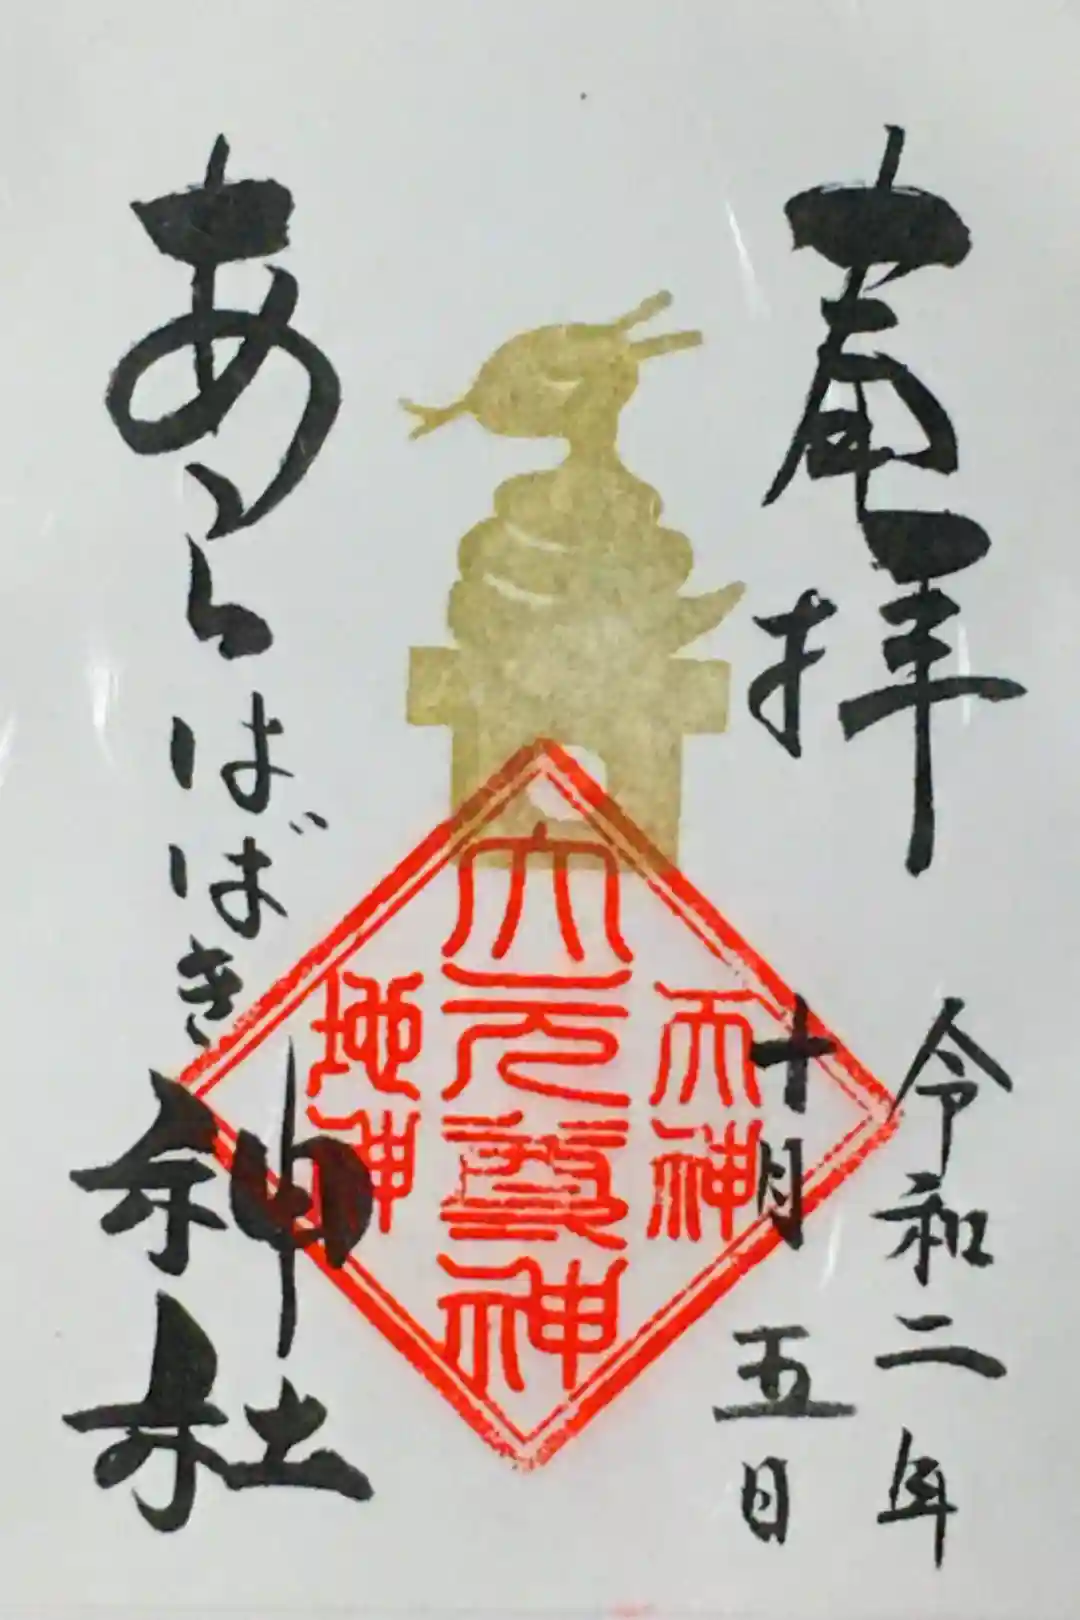 奉拝
令和二年
十月五日
天神
大元尊神
地神
あらはばき神社